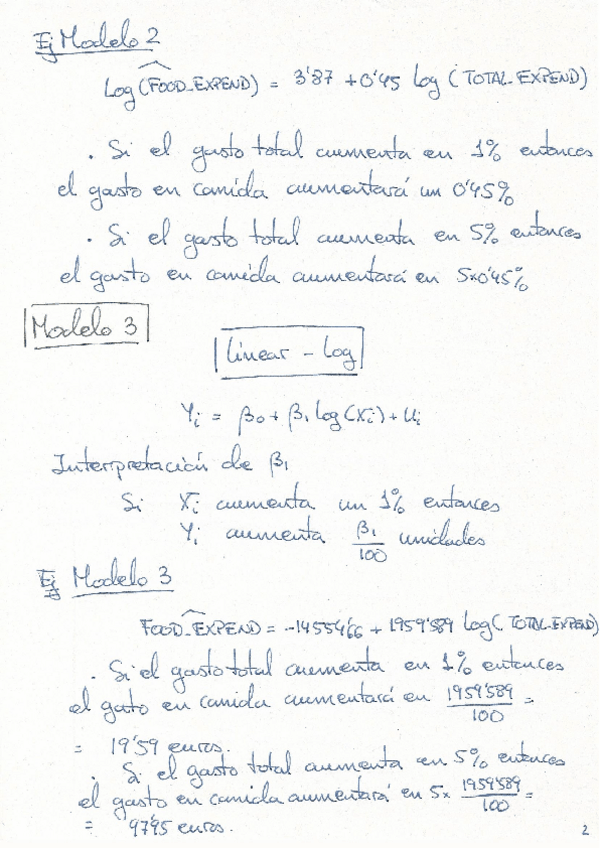 Ej Modelo 2
Log(FOOD_EXPEND)^ = 3'87 + 0'45 log (TOTAL_EXPEND)
. Si el gasto total aumenta en 1% entonces
el gasto en comida aumentará un 0'45%
. Si el gasto total aumenta en 5% entonces
el gasto en comida aumentará en 5x0'45%
Modelo 3
linear - log
Yi = β0 + β1 log(Xi) + Ui
Interpretación de β1
Si Xi aumenta un 1% entonces
Yi aumenta β1/100 unidades
Ej Modelo 3
FOOD_EXPEND^ = -14554'66 + 1959'589 Log(TOTAL_EXPEND)
. Si el gasto total aumenta en 1% entonces
el gasto en comida aumentará en 1959'589/100 =
= 19'59 euros.
. Si el gasto total aumenta en 5% entonces
el gasto en comida aumentará en 5x 1959'589/100 =
= 97'95 euros.
2